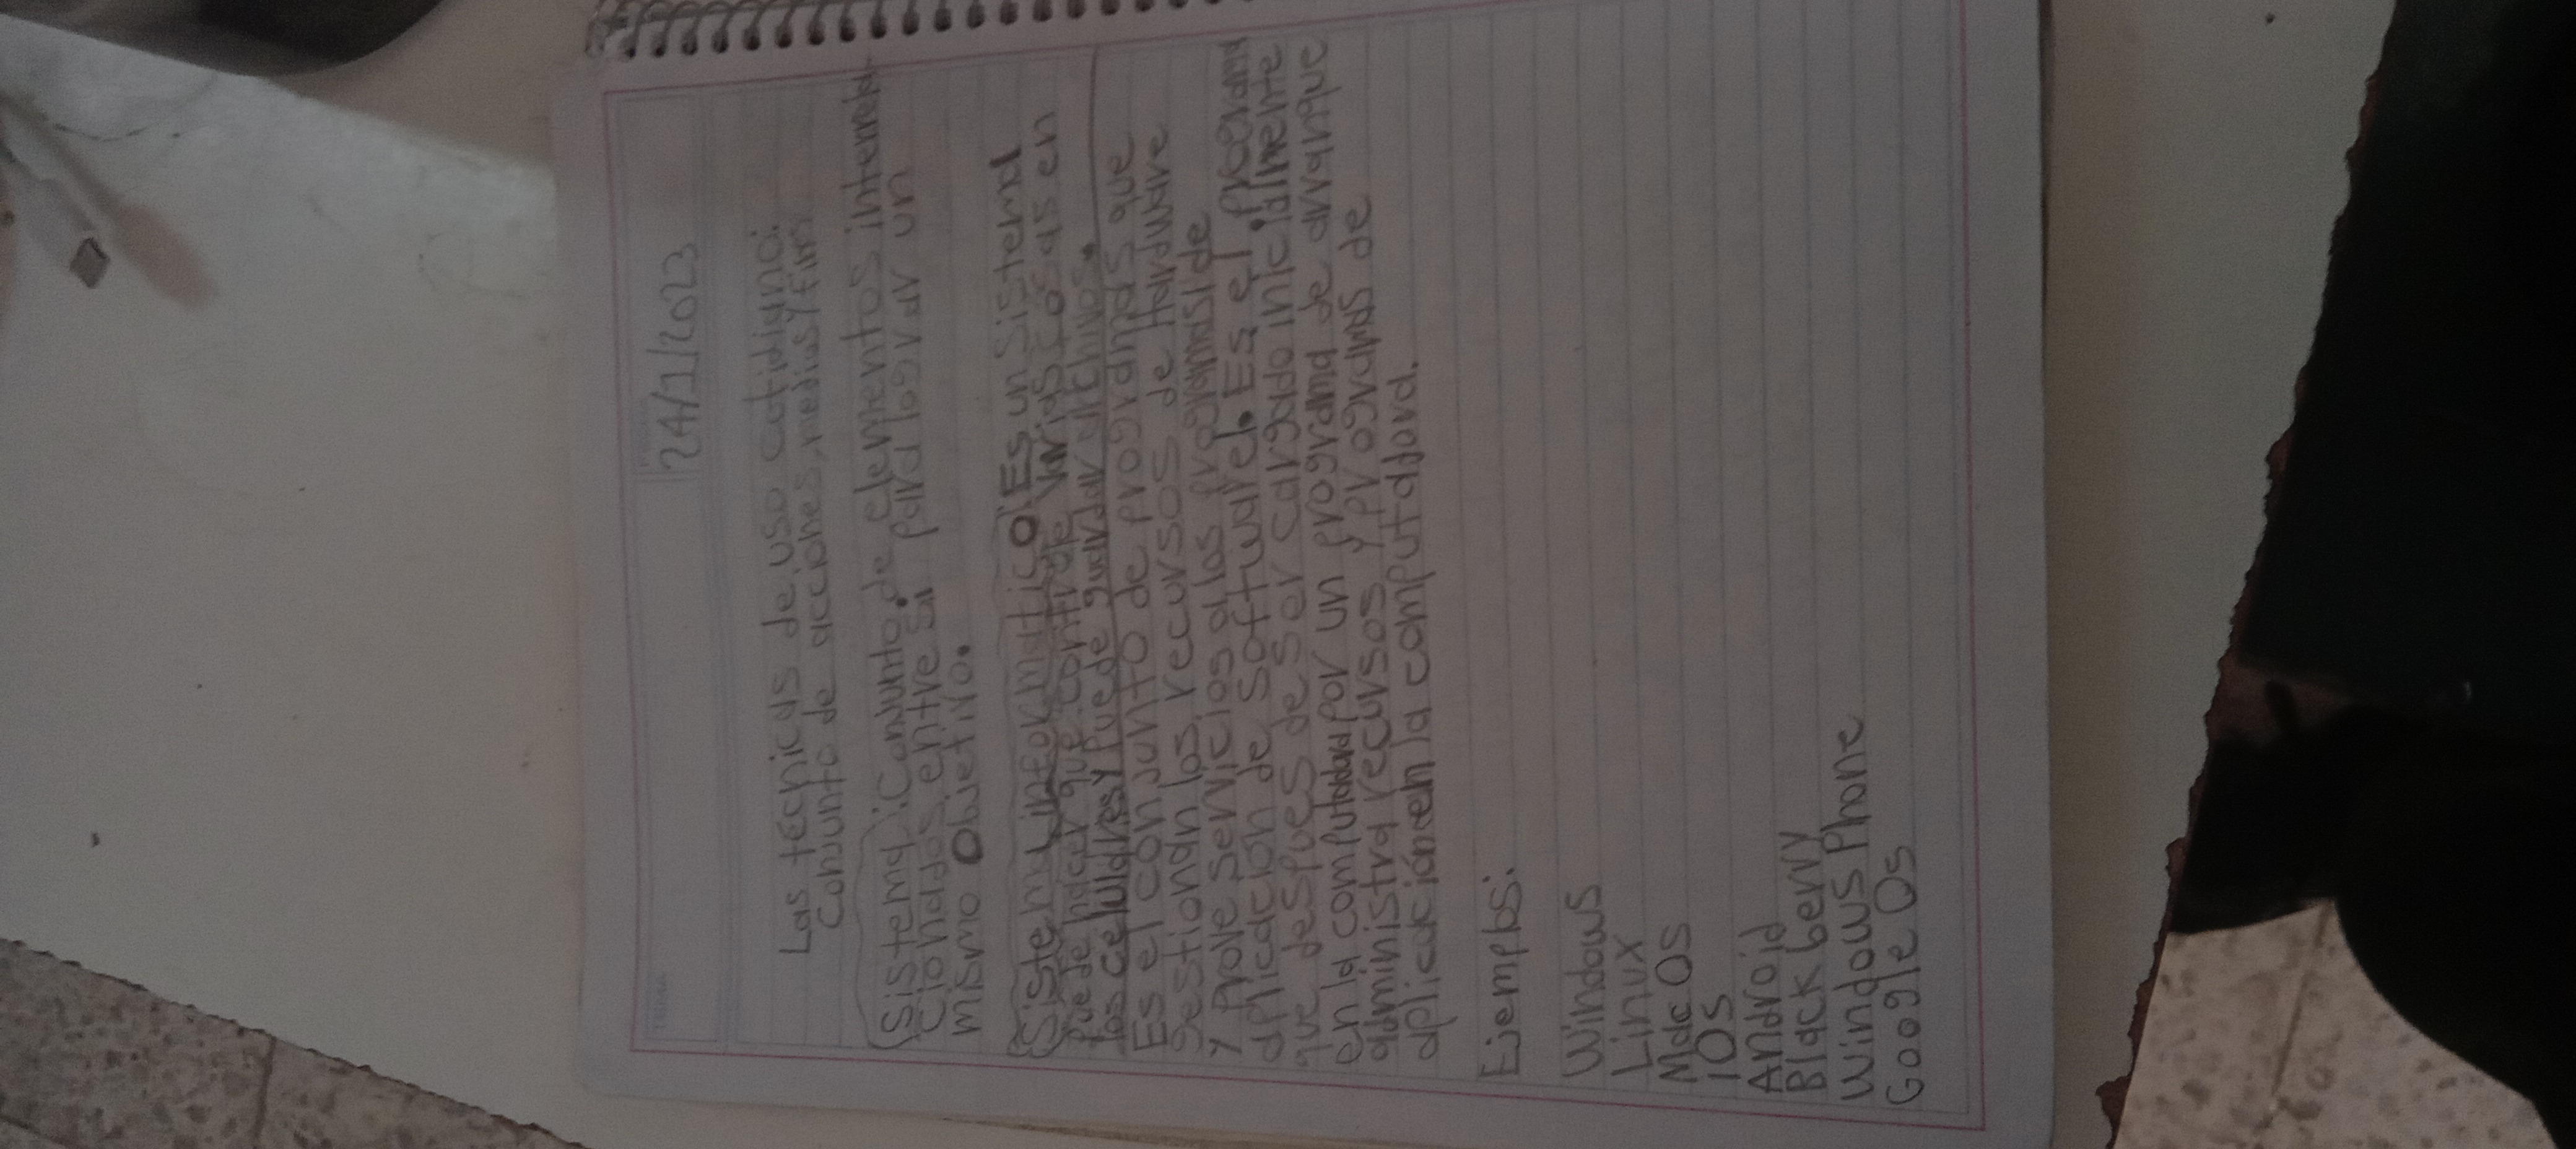 24/1/2023
Las técnicas de uso cotidiano:
Conjunto de acciones, medios y fin
Sistema: Conjunto de elementos interrela
cionados entre si para lograr un
mismo Objetivo.
Sistema informático Es un sistema
puede hacer que contrae varias cosas en
los celulares y puede guardar archivos.
Es el conjunto de programas que
gestionan los recursos de Hardware
y provee servicios a los programas de
aplicación de software. Es el programa
que después de ser cargado inicialmente
en la computadora por un programa de arranque
administra recursos y programas de
aplicación en la computadora.
Ejemplos:
Windows
Linux
Mac OS
IOS
Android
Black berry
Windows Phone
Google Os